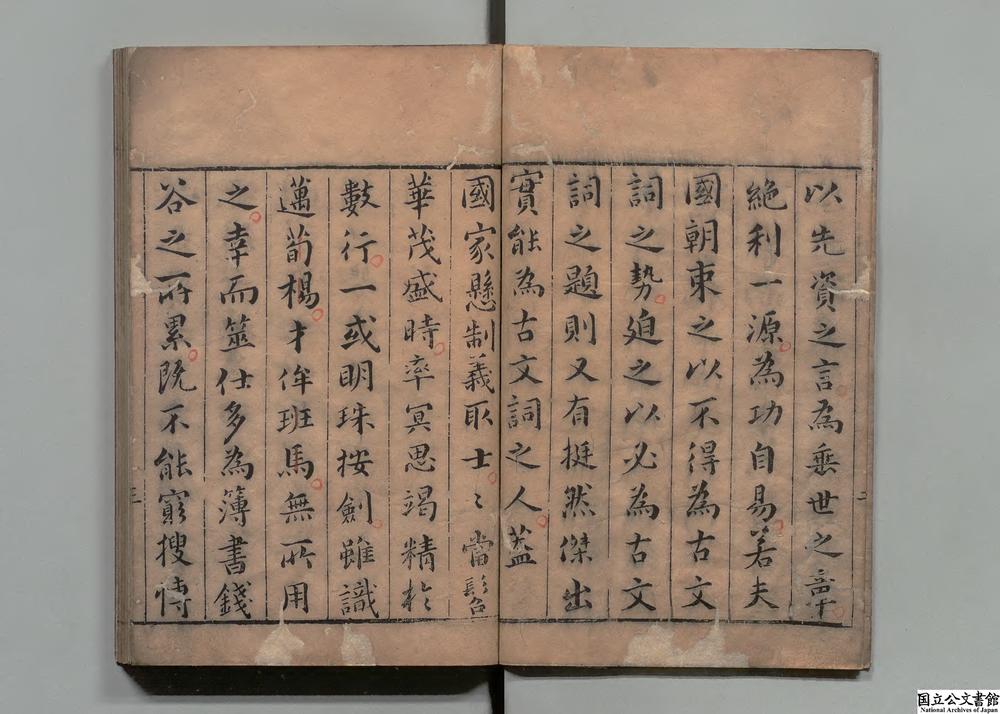 以先資之言為垂世之音
絶利一源為功自易若夫
國朝束之以不得為古文
詞之勢迫之以必為古文
詞之題則又有挺然傑出
實能為古文詞之人蓋
國家懸制義取士〻當髫
華茂盛時率冥思竭精於
數行一或明珠按劍雖識
邁荀楊才侔班馬無所用
之幸而筮仕多為簿書錢
谷之所累既不能窮搜博
二
三
国立公文書館
National Archives of Japan